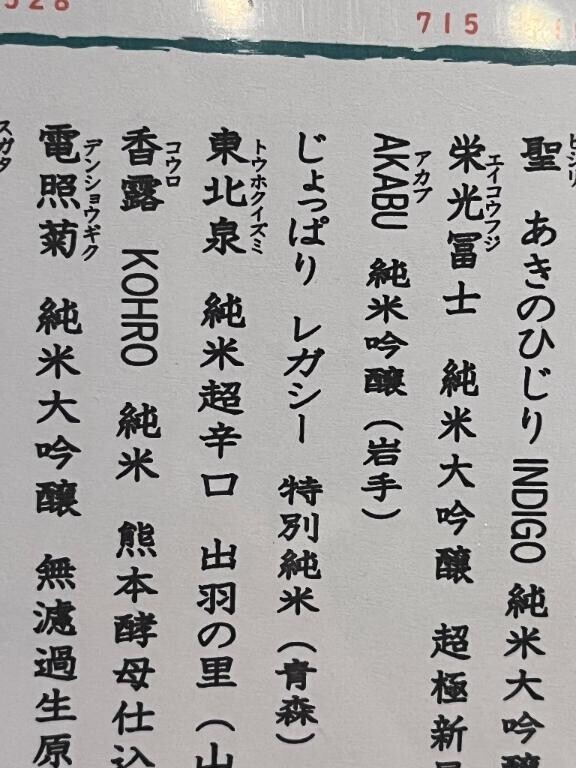 715
聖 あきのひじり INDIGO 純米大吟醸
ヒジリ
栄光冨士 純米大吟醸 超極新
エイコウフジ
AKABU 純米吟醸（岩手）
アカブ
じょっぱり レガシー 特別純米（青森）
東北泉 純米超辛口 出羽の里（山
トウホクイズミ
香露 KOHRO 純米 熊本酵母仕込
コウロ
電照菊 純米大吟醸 無濾過生原
デンショウギク
スガタ